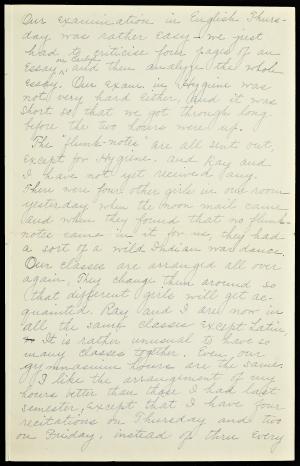 Our examination in English Thurs-
day was rather easy - we just
had to criticise four pages of an
Essay, and then analyze the whole
Essay. Our exam in Hygine was
not very hard either, and it was
short so that we got through long
before the two hours were up.
The "flunk-notes" are all sent out,
except for Hygine. and Ray and
I have not yet received any.
There were four other girls in our room
yesterday when the noon mail came
and when they found that no flunk-
notes came in it for us, they had
a sort of a wild Indian war dance.
Our classes are arranged all over
again. They change them around so
that different girls will get ac-
quainted. Ray and I are now in
all the same classes except Latin.
It is rather unusual to have so
many classes together. Even our
gymnasium hours are the same.
I like the arrangement of my
hours better than those I had last
semester, except that I have four
recitations on Thursday and two
on Friday, instead of three every